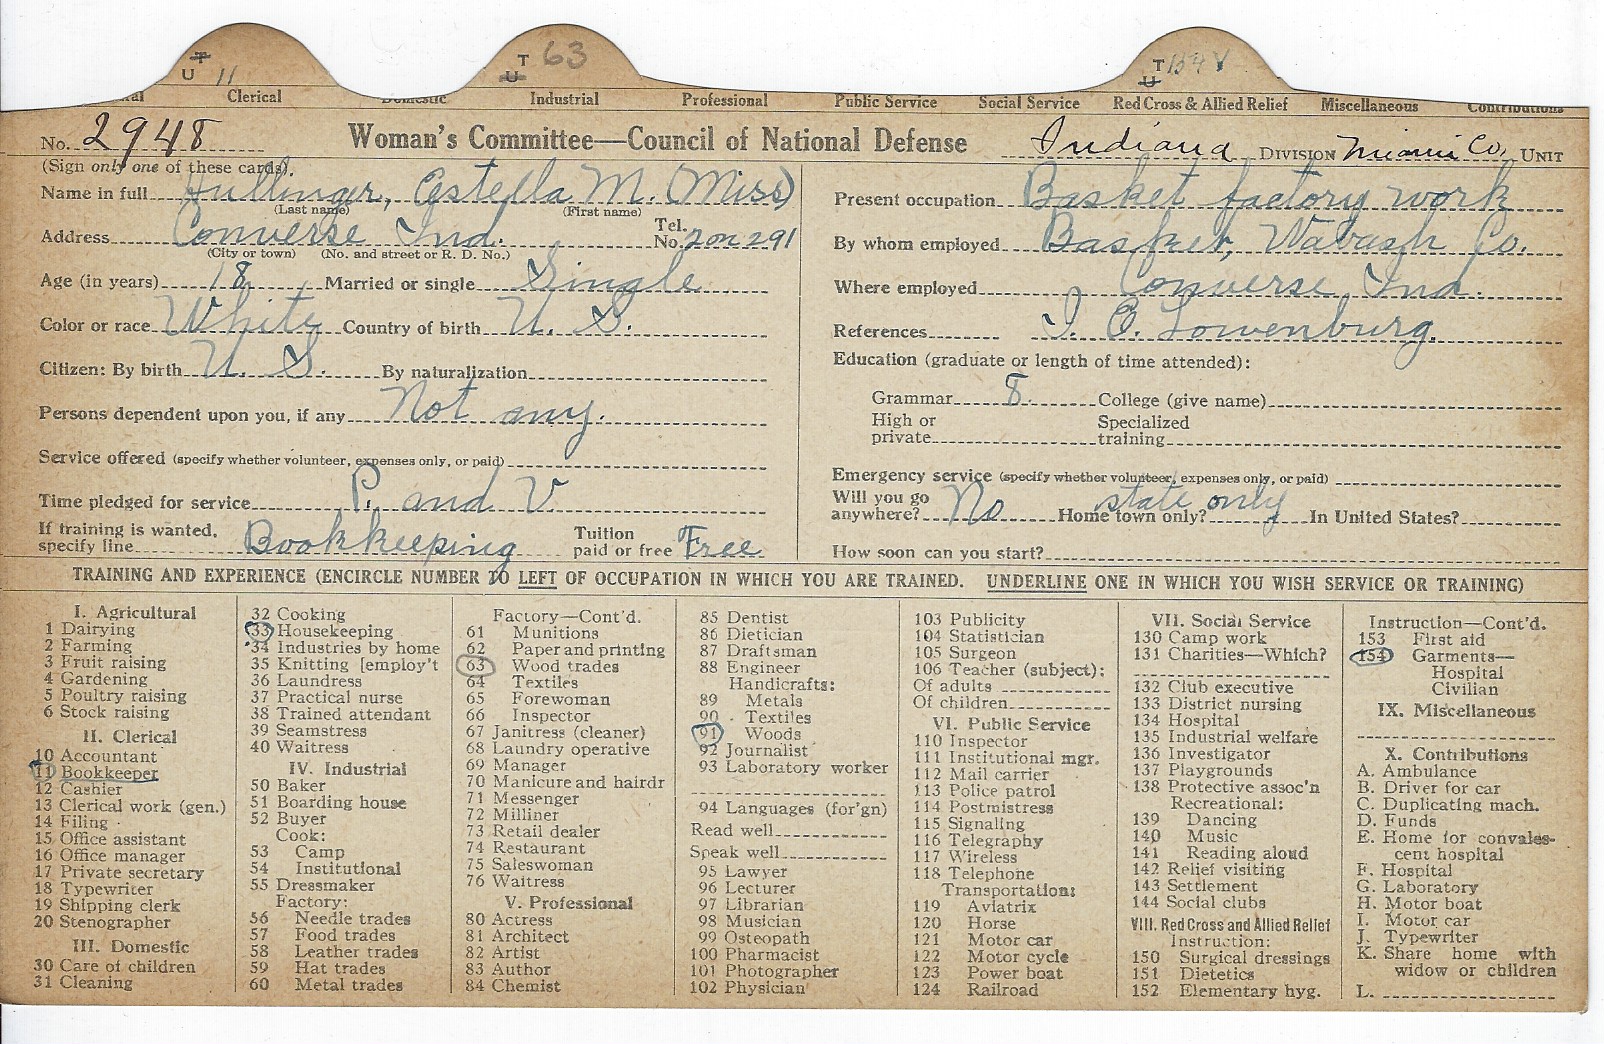 T U 11
T U 63
T U 154 V
Clerical Domestic Industrial Professional Public Service Social Service Red Cross & Allied Relief Miscellaneous Contributions
No. 2948 Woman's Committee—Council of National Defense Indiana DIVISION Miami Co. UNIT
(Sign only one of these cards).
Name in full Hullinger, Estella M. (Miss)
(Last name) (First name)
Address Converse Ind. Tel. No. 2 on 291
(City or town) (No. and street or R. D. No.)
Age (in years) 18 Married or single Single
Color or race White Country of birth U. S.
Citizen: By birth U. S. By naturalization
Persons dependent upon you, if any Not any.
Service offered (specify whether volunteer, expenses only, or paid)
Time pledged for service P. and V
If training is wanted, specify line Bookkeeping Tuition paid or free Free
Present occupation Basket factory work
By whom employed Basket, Wabash Co.
Where employed Converse Ind.
References I. B. Lowenburg.
Education (graduate or length of time attended):
Grammar 8 College (give name)
High or private Specialized training
Emergency service (specify whether volunteer, expenses only, or paid)
Will you go anywhere? No Home town only? state only In United States?
How soon can you start?
TRAINING AND EXPERIENCE (ENCIRCLE NUMBER TO LEFT OF OCCUPATION IN WHICH YOU ARE TRAINED. UNDERLINE ONE IN WHICH YOU WISH SERVICE OR TRAINING)
I. Agricultural
1 Dairying
2 Farming
3 Fruit raising
4 Gardening
5 Poultry raising
6 Stock raising
II. Clerical
10 Accountant
11 Bookkeeper
12 Cashier
13 Clerical work (gen.)
14 Filing
15 Office assistant
16 Office manager
17 Private secretary
18 Typewriter
19 Shipping clerk
20 Stenographer
III. Domestic
30 Care of children
31 Cleaning
32 Cooking
33 Housekeeping
34 Industries by home
35 Knitting [employ't
36 Laundress
37 Practical nurse
38 Trained attendant
39 Seamstress
40 Waitress
IV. Industrial
50 Baker
51 Boarding house
52 Buyer
Cook:
53 Camp
54 Institutional
55 Dressmaker
Factory:
56 Needle trades
57 Food trades
58 Leather trades
59 Hat trades
60 Metal trades
Factory—Cont'd.
61 Munitions
62 Paper and printing
63 Wood trades
64 Textiles
65 Forewoman
66 Inspector
67 Janitress (cleaner)
68 Laundry operative
69 Manager
70 Manicure and hairdr
71 Messenger
72 Milliner
73 Retail dealer
74 Restaurant
75 Saleswoman
76 Waitress
V. Professional
80 Actress
81 Architect
82 Artist
83 Author
84 Chemist
85 Dentist
86 Dietician
87 Draftsman
88 Engineer
Handicrafts:
89 Metals
90 Textiles
91 Woods
92 Journalist
93 Laboratory worker
94 Languages (for'gn)
Read well
Speak well
95 Lawyer
96 Lecturer
97 Librarian
98 Musician
99 Osteopath
100 Pharmacist
101 Photographer
102 Physician
103 Publicity
104 Statistician
105 Surgeon
106 Teacher (subject):
Of adults
Of children
VI. Public Service
110 Inspector
111 Institutional mgr.
112 Mail carrier
113 Police patrol
114 Postmistress
115 Signaling
116 Telegraphy
117 Wireless
118 Telephone
Transportation:
119 Aviatrix
120 Horse
121 Motor car
122 Motor cycle
123 Power boat
124 Railroad
VII. Social Service
130 Camp work
131 Charities—Which?
132 Club executive
133 District nursing
134 Hospital
135 Industrial welfare
136 Investigator
137 Playgrounds
138 Protective assoc'n
Recreational:
139 Dancing
140 Music
141 Reading aloud
142 Relief visiting
143 Settlement
144 Social clubs
VIII. Red Cross and Allied Relief
Instruction:
150 Surgical dressings
151 Dietetics
152 Elementary hyg.
Instruction—Cont'd.
153 First aid
154 Garments—
Hospital
Civilian
IX. Miscellaneous
X. Contributions
A. Ambulance
B. Driver for car
C. Duplicating mach.
D. Funds
E. Home for convales-
cent hospital
F. Hospital
G. Laboratory
H. Motor boat
I. Motor car
J. Typewriter
K. Share home with
widow or children
L.